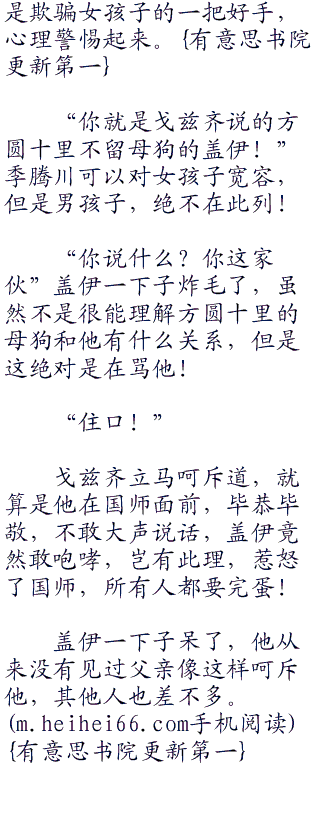 是欺骗女孩子的一把好手，
心理警惕起来。{有意思书院
更新第一}
“你就是戈兹齐说的方
圆十里不留母狗的盖伊！”
季腾川可以对女孩子宽容，
但是男孩子，绝不在此列！
“你说什么？你这家
伙”盖伊一下子炸毛了，虽
然不是很能理解方圆十里的
母狗和他有什么关系，但是
这绝对是在骂他！
“住口！”
戈兹齐立马呵斥道，就
算是他在国师面前，毕恭毕
敬，不敢大声说话，盖伊竟
然敢咆哮，岂有此理，惹怒
了国师，所有人都要完蛋！
盖伊一下子呆了，他从
来没有见过父亲像这样呵斥
他，其他人也差不多。
(m.heihei66.com手机阅读)
{有意思书院更新第一}